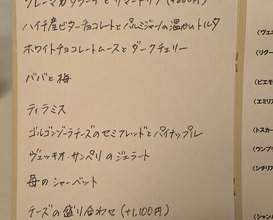 ハイチ産ビターチョコレートとパルミジャーノの温かいトルタ
ホワイトチョコレートムースとダークチェリー
ババと梅
ティラミス
ゴルゴンゾーラチーズのセミフレッドとパイナップル
ヴェッキオ・サンペリのジェラート
苺のシャーベット
チーズの盛り合わせ (+1,100円)
〈ヴェネ
〈リグー
〈ピエモ
〈エミリ
〈トスカー
〈ウンブリ
〈シチリア